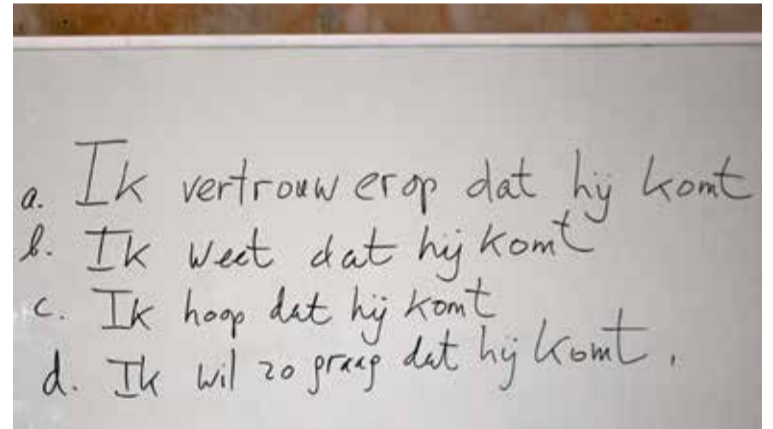 a. Ik vertrouw erop dat hij komt
b. Ik weet dat hij komt
c. Ik hoop dat hij komt
d. Ik wil zo graag dat hij komt.